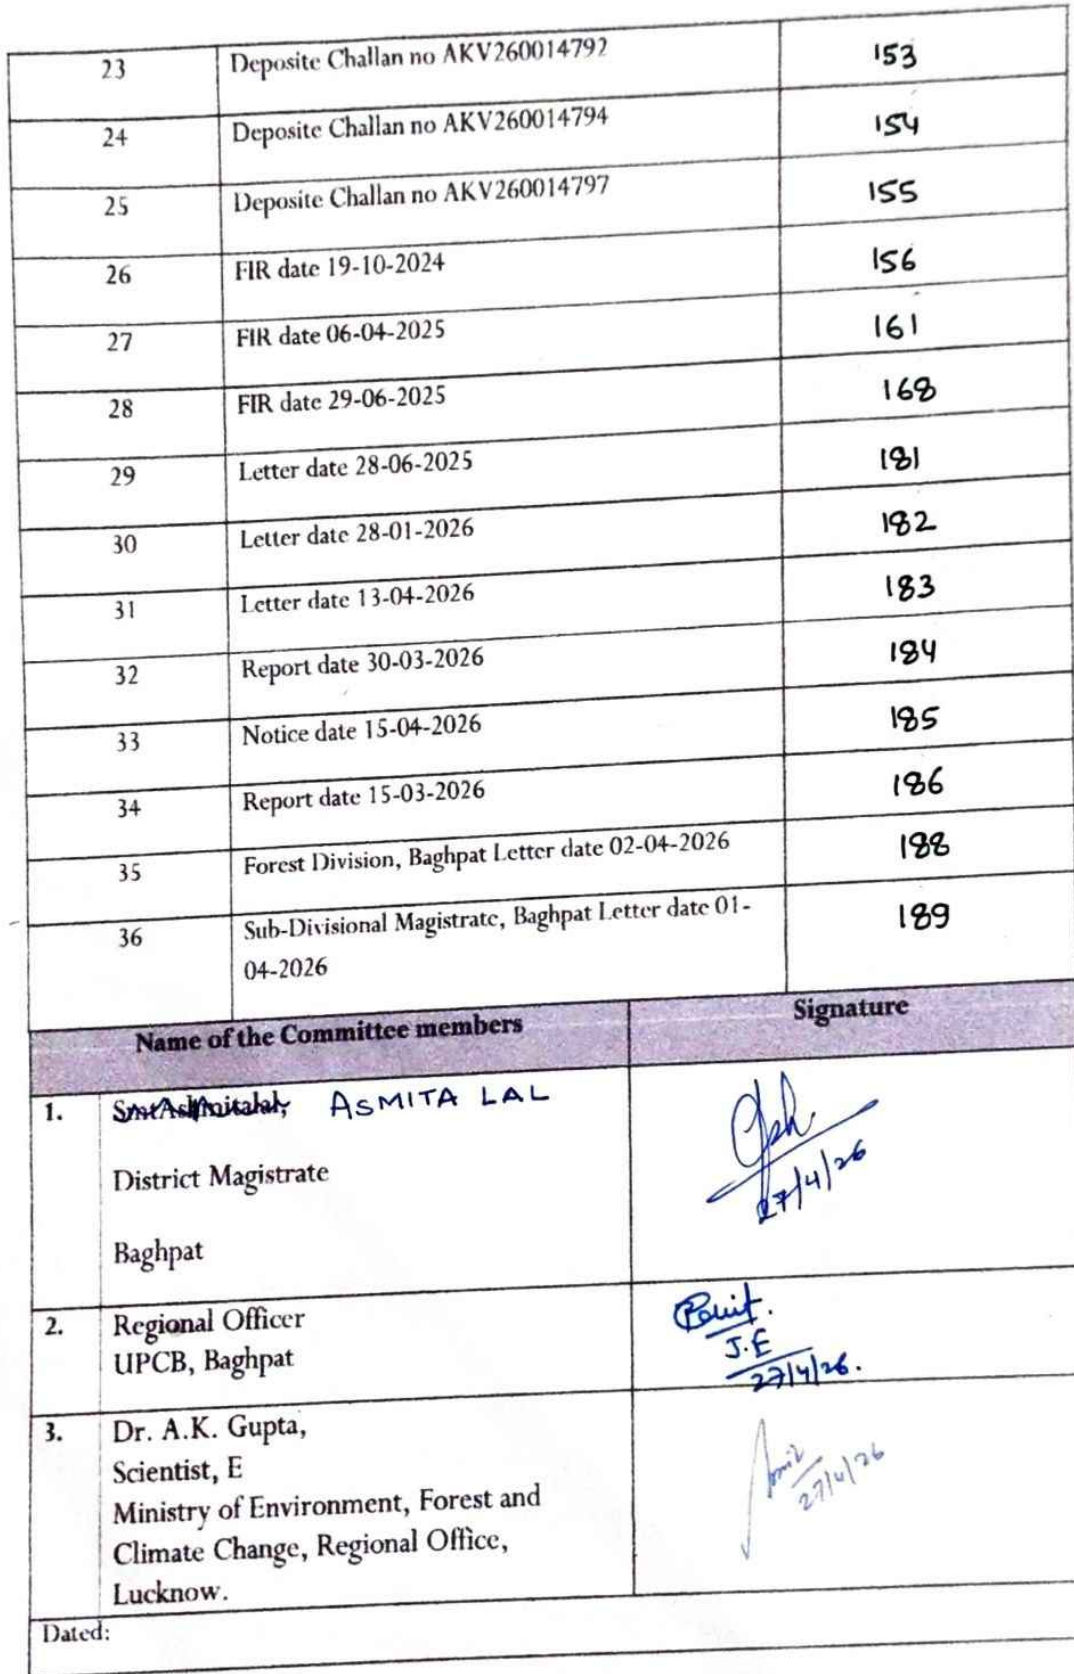 23 Deposite Challan no AKV260014792 153
24 Deposite Challan no AKV260014794 154
25 Deposite Challan no AKV260014797 155
26 FIR date 19-10-2024 156
27 FIR date 06-04-2025 161
28 FIR date 29-06-2025 168
29 Letter date 28-06-2025 181
30 Letter date 28-01-2026 182
31 Letter date 13-04-2026 183
32 Report date 30-03-2026 184
33 Notice date 15-04-2026 185
34 Report date 15-03-2026 186
35 Forest Division, Baghpat Letter date 02-04-2026 188
36 Sub-Divisional Magistrate, Baghpat Letter date 01- 189
04-2026
Name of the Committee members Signature
1. ASMITA LAL
District Magistrate
27/4/26
Baghpat
2. Regional Officer
UPCB, Baghpat J.E
27/4/26.
3. Dr. A.K. Gupta,
Scientist, E 27/4/26
Ministry of Environment, Forest and
Climate Change, Regional Office,
Lucknow.
Dated: